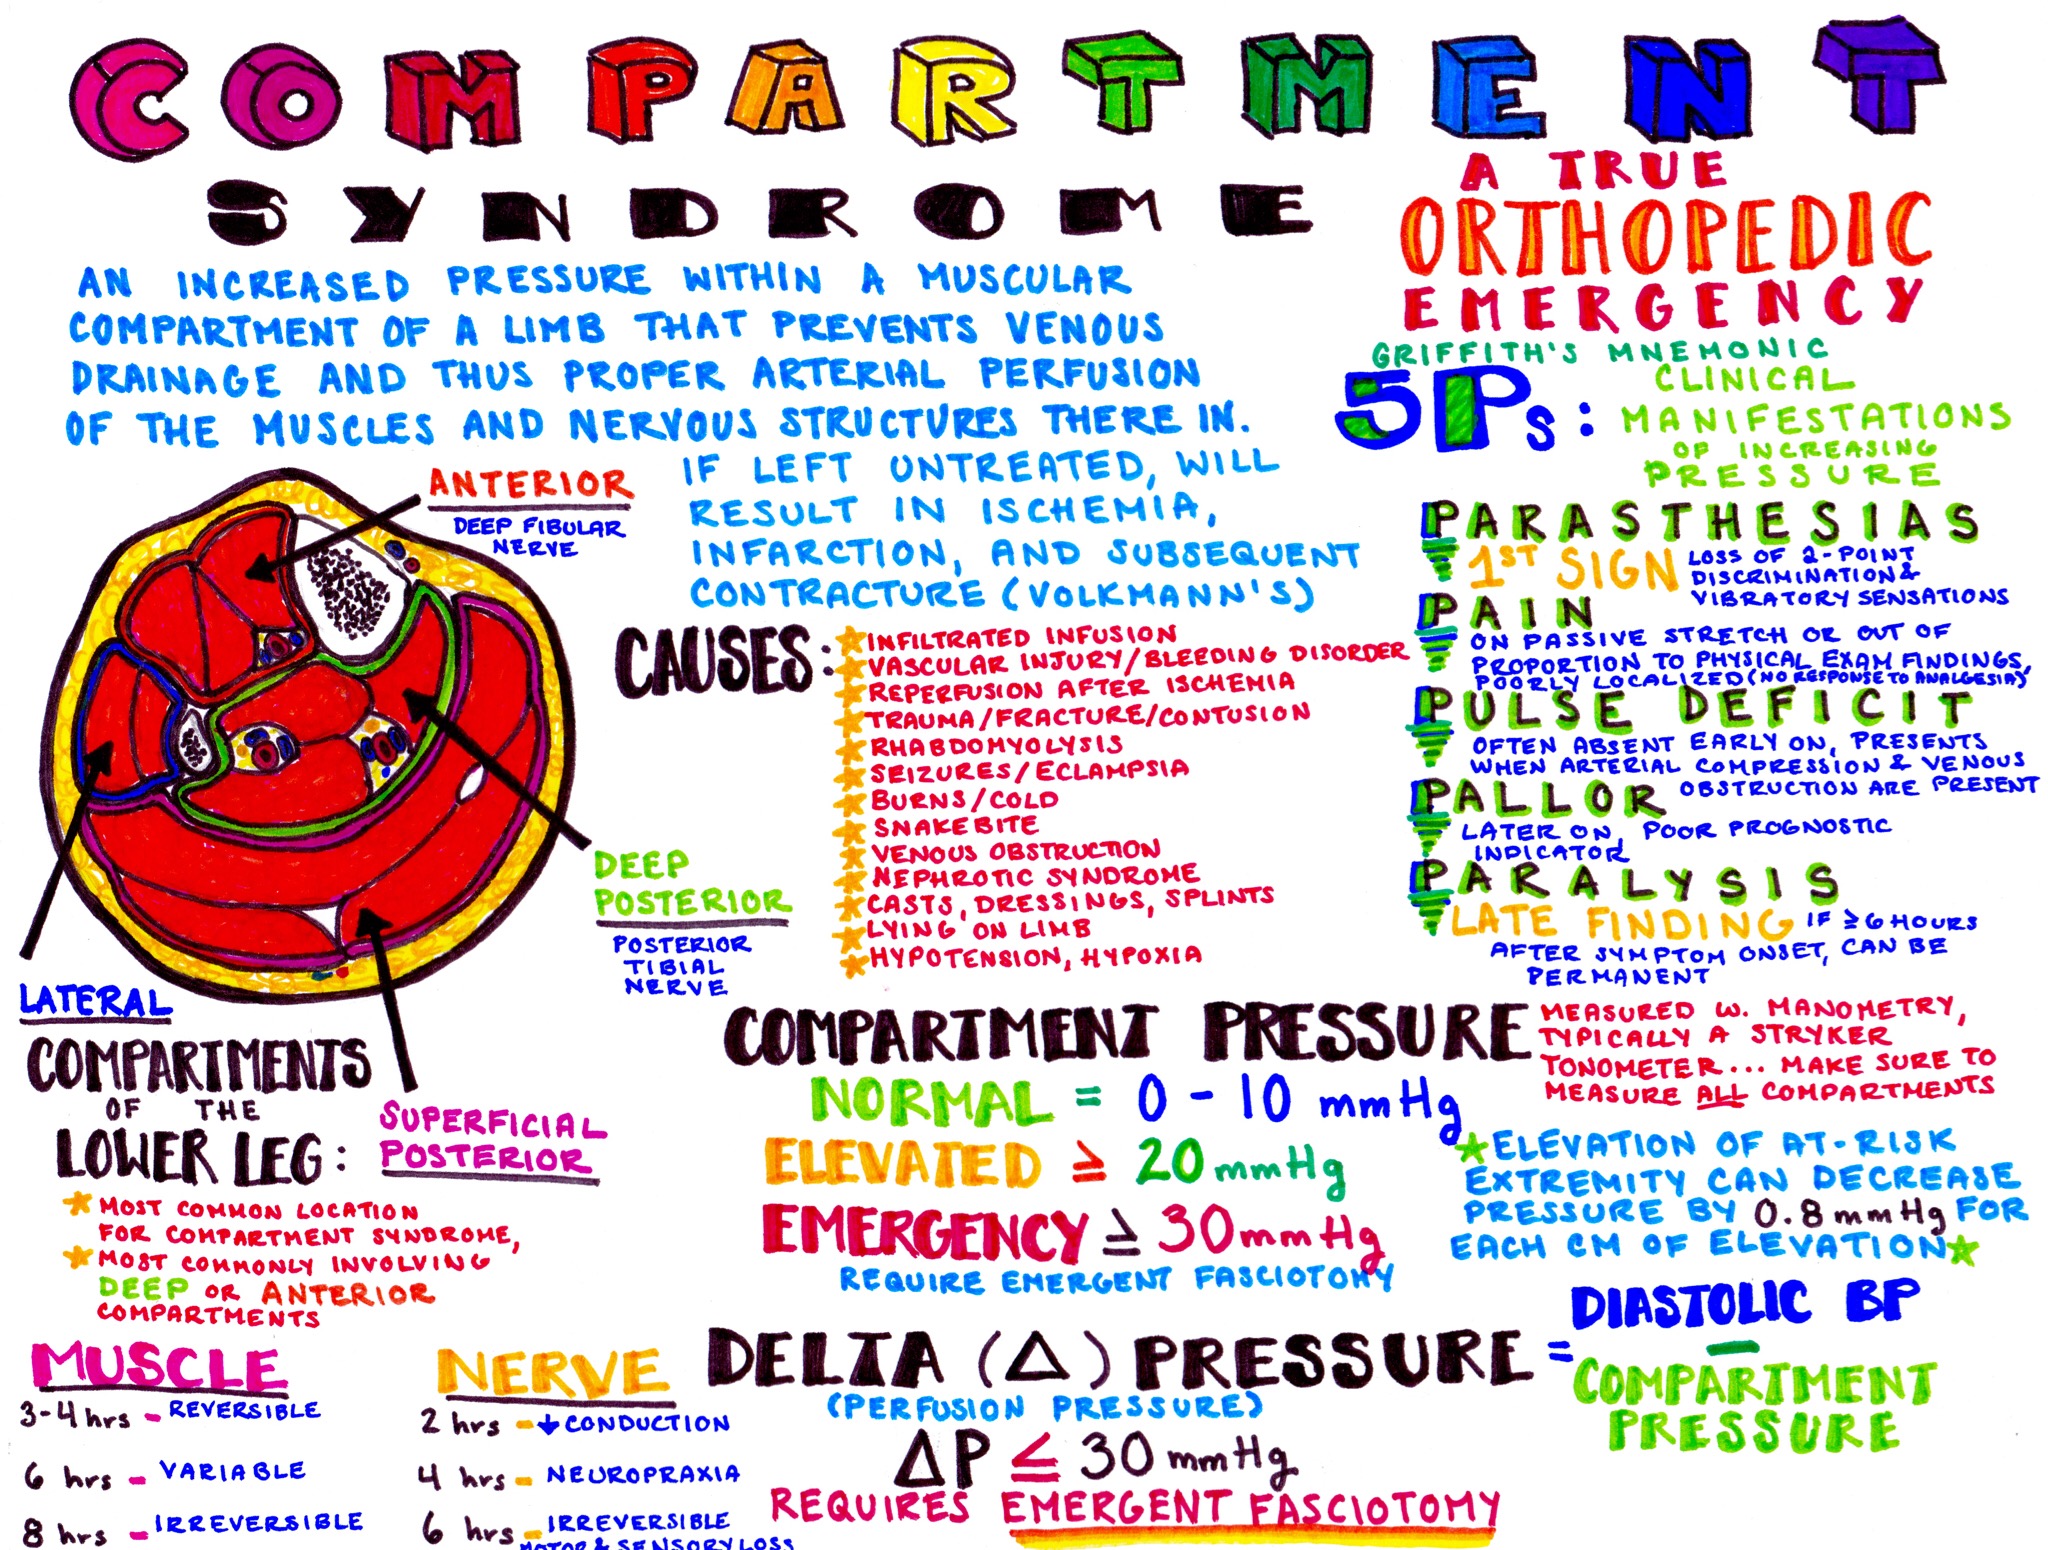 COMPARTMENT
SYNDROME
A TRUE
ORTHOPEDIC
EMERGENCY
AN INCREASED PRESSURE WITHIN A MUSCULAR
COMPARTMENT OF A LIMB THAT PREVENTS VENOUS
DRAINAGE AND THUS PROPER ARTERIAL PERFUSION
OF THE MUSCLES AND NERVOUS STRUCTURES THERE IN.
IF LEFT UNTREATED, WILL
RESULT IN ISCHEMIA,
INFARCTION, AND SUBSEQUENT
CONTRACTURE (VOLKMANN'S)
GRIFFITH'S MNEMONIC
5Ps: CLINICAL
MANIFESTATIONS
OF INCREASING
PRESSURE
PARASTHESIAS
1ST SIGN LOSS OF 2-POINT
DISCRIMINATION &
VIBRATORY SENSATIONS
PAIN
ON PASSIVE STRETCH OR OUT OF
PROPORTION TO PHYSICAL EXAM FINDINGS,
POORLY LOCALIZED (NO RESPONSE TO ANALGESIA)
PULSE DEFICIT
OFTEN ABSENT EARLY ON, PRESENTS
WHEN ARTERIAL COMPRESSION & VENOUS
OBSTRUCTION ARE PRESENT
PALLOR
LATER ON, POOR PROGNOSTIC
INDICATOR
PARALYSIS
LATE FINDING IF ≥6 HOURS
AFTER SYMPTOM ONSET, CAN BE
PERMANENT
ANTERIOR
DEEP FIBULAR
NERVE
DEEP
POSTERIOR
POSTERIOR
TIBIAL
NERVE
LATERAL
SUPERFICIAL
POSTERIOR
CAUSES:
INFILTRATED INFUSION
VASCULAR INJURY/BLEEDING DISORDER
REPERFUSION AFTER ISCHEMIA
TRAUMA/FRACTURE/CONTUSION
RHABDOMYOLYSIS
SEIZURES/ECLAMPSIA
BURNS/COLD
SNAKEBITE
VENOUS OBSTRUCTION
NEPHROTIC SYNDROME
CASTS, DRESSINGS, SPLINTS
LYING ON LIMB
HYPOTENSION, HYPOXIA
COMPARTMENTS
OF THE
LOWER LEG:
MOST COMMON LOCATION
FOR COMPARTMENT SYNDROME,
MOST COMMONLY INVOLVING
DEEP OR ANTERIOR
COMPARTMENTS
COMPARTMENT PRESSURE
MEASURED W. MANOMETRY,
TYPICALLY A STRYKER
TONOMETER... MAKE SURE TO
MEASURE ALL COMPARTMENTS
NORMAL = 0 - 10 mmHg
ELEVATED ≥ 20 mmHg
EMERGENCY ≥ 30 mmHg
REQUIRE EMERGENT FASCIOTOMY
ELEVATION OF AT-RISK
EXTREMITY CAN DECREASE
PRESSURE BY 0.8 mmHg FOR
EACH CM OF ELEVATION
MUSCLE
3-4 hrs - REVERSIBLE
6 hrs - VARIABLE
8 hrs - IRREVERSIBLE
NERVE
2 hrs - ↓ CONDUCTION
4 hrs - NEUROPRAXIA
6 hrs - IRREVERSIBLE
MOTOR & SENSORY LOSS
DELTA (Δ) PRESSURE = DIASTOLIC BP
- COMPARTMENT
PRESSURE
(PERFUSION PRESSURE)
ΔP ≤ 30 mmHg
REQUIRES EMERGENT FASCIOTOMY